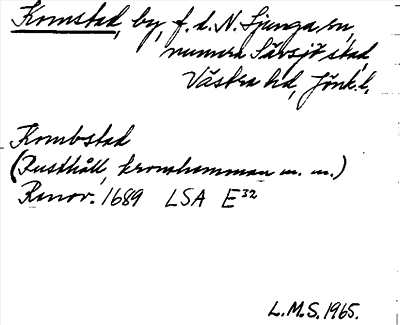 Komstad, by, f.d. N. Ljunga sn,
numera Sävsjö stad,
Västra hd, Jönk. l.
Kombstad
(Rusthåll, kronohemman m. m.)
Renov. 1689 LSA E³²
L.M.S. 1965.